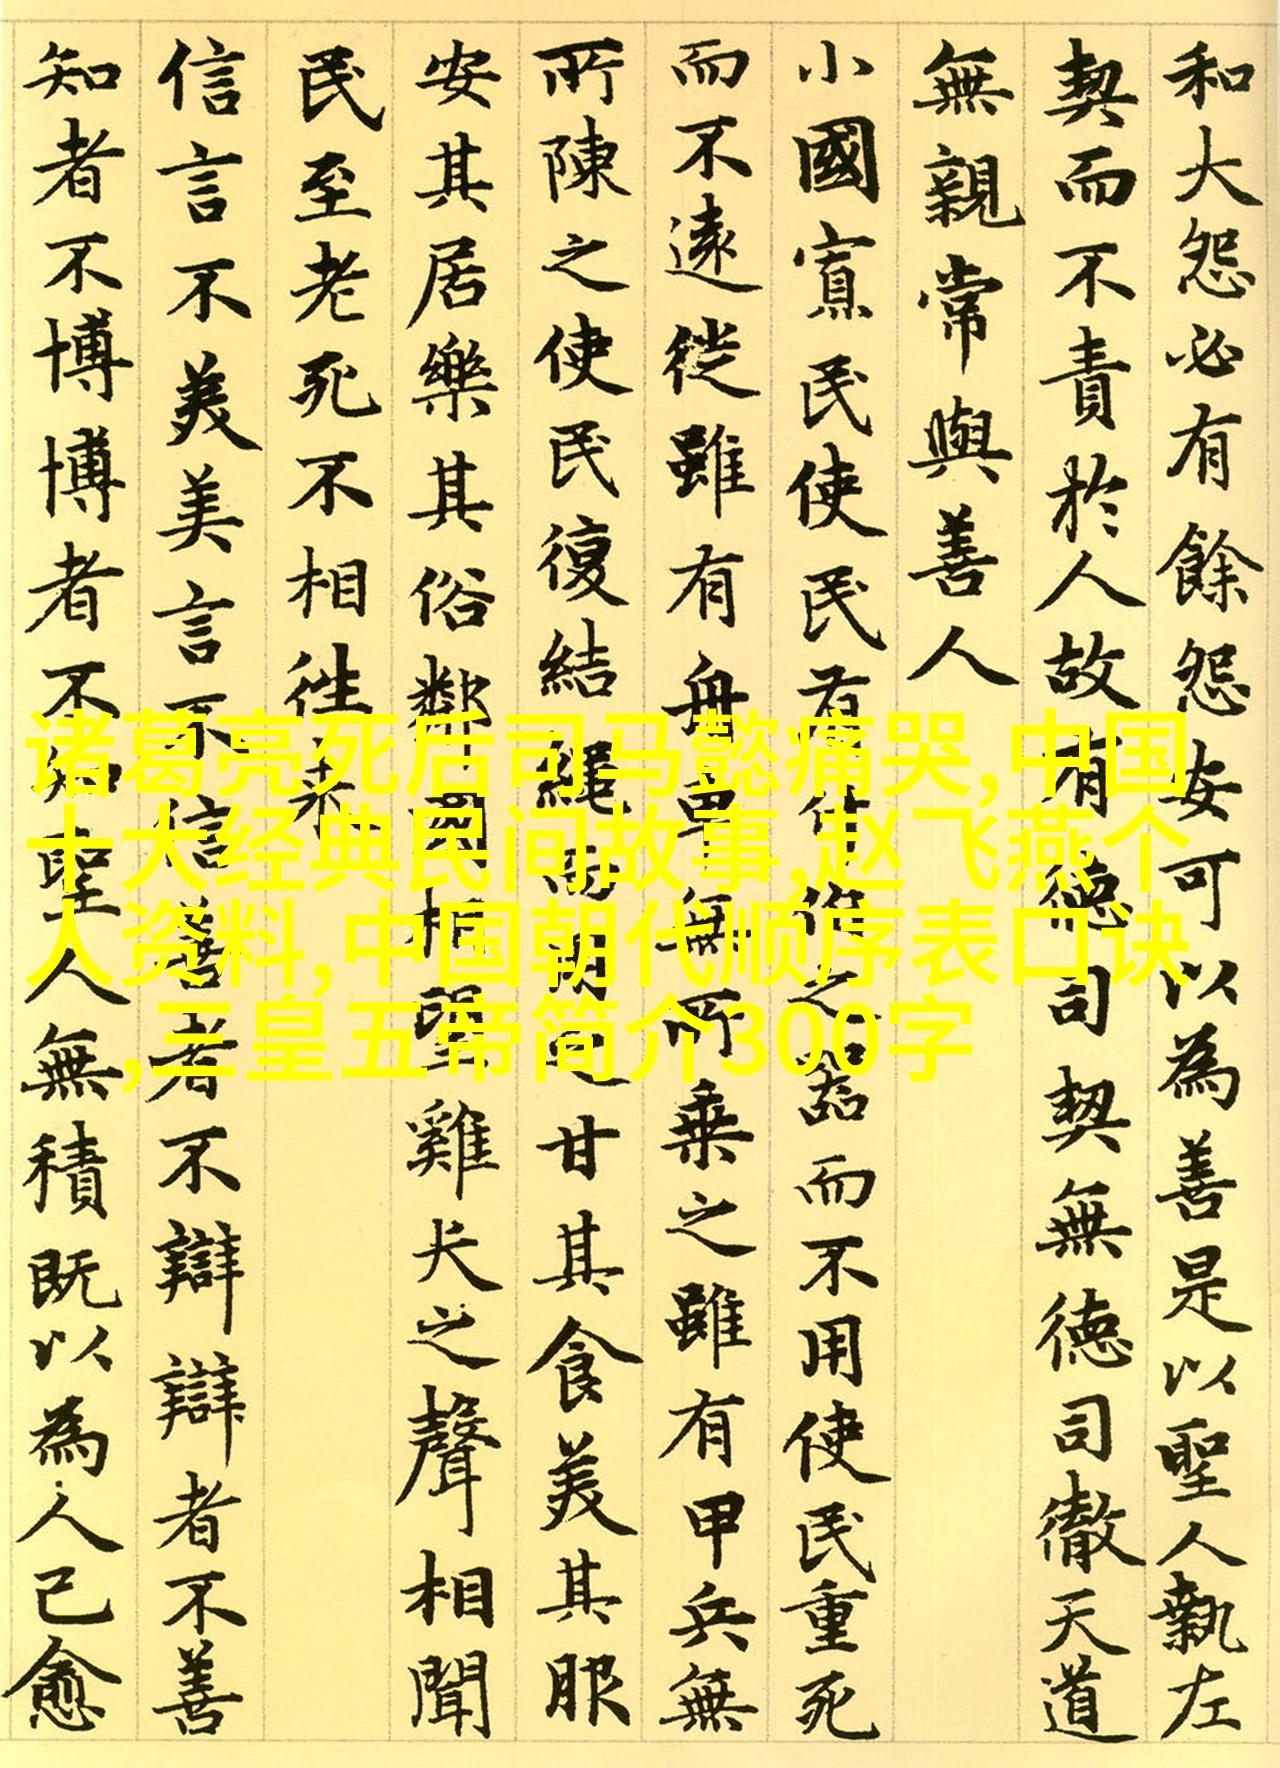 和大怨必有餘怨安可以為善是以聖人執左
契而不責於人故有德司契無德司徹天道
無親常與善人
小國寡民使民有什伯之器而不用使民重死
而不遠徙雖有舟車無所乘之雖有甲兵無
所陳之使民復結繩而用之甘其食美其服
安其居樂其俗鄰國相望雞犬之聲相聞
民至老死不相往来
信言不美美言不信善者不辯辯者不善
知者不博博者不知聖人無積既以為人己愈
诸葛亮死后司马懿痛哭,中国
十大经典民间故事,赵飞燕个
人资料,中国朝代顺序表口诀
,三皇五帝简介300字